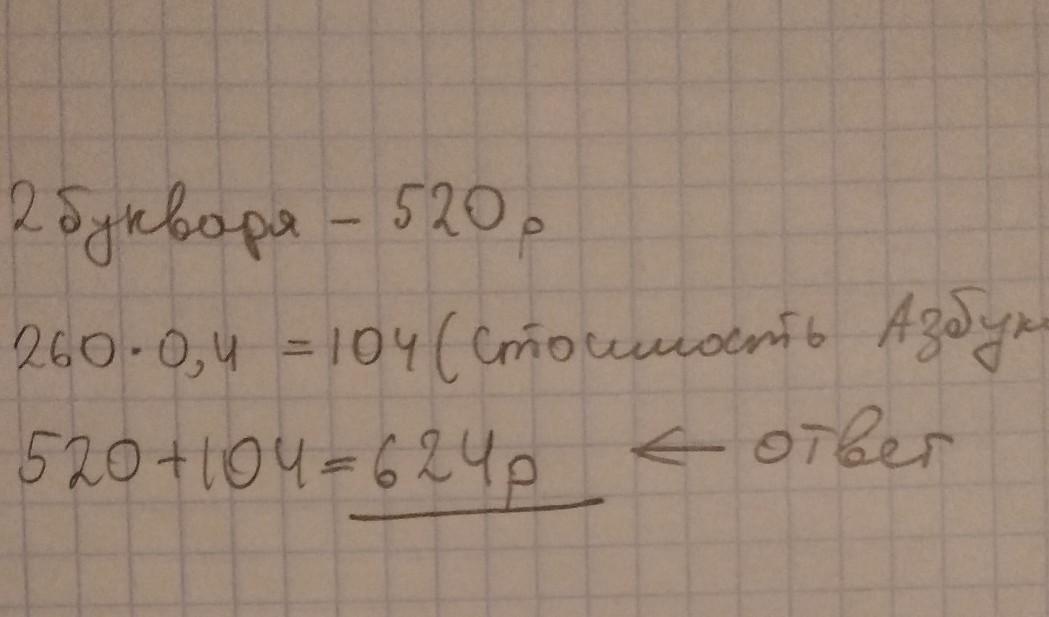 2 букваря - 520 р
260 · 0,4 = 104 (стоимость Азбук
520 + 104 = 624 р ← ответ